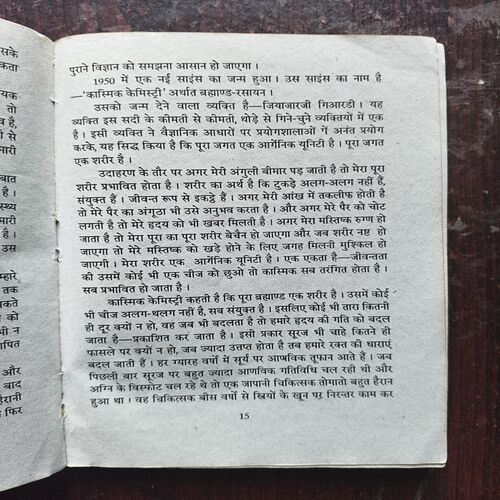 सके
कता
तो
व है,
मारी
बात
स्थ्य
ते हैं
मारी
उस
म्हारे
तक
बकते
को
पित
और
बाद
हैरानी
फिर
पुराने विज्ञान को समझना आसान हो जाएगा ।
1950 में एक नई साइंस का जन्म हुआ । उस साइंस का नाम है
—'कास्मिक केमिस्ट्री' अर्थात ब्रह्माण्ड-रसायन ।
उसको जन्म देने वाला व्यक्ति है—जियाजारजी गिआरडी । यह
व्यक्ति इस सदी के कीमती से कीमती, थोड़े से गिने-चुने व्यक्तियों में एक
है । इसी व्यक्ति ने वैज्ञानिक आधारों पर प्रयोगशालाओं में अनंत प्रयोग
करके, यह सिद्ध किया है कि पूरा जगत एक आर्गेनिक यूनिटी है । पूरा जगत
एक शरीर है ।
उदाहरण के तौर पर अगर मेरी अंगुली बीमार पड़ जाती है तो मेरा पूरा
शरीर प्रभावित होता है । शरीर का अर्थ है कि टुकड़े अलग-अलग नहीं हैं,
संयुक्त हैं । जीवन्त रूप से इकट्ठे हैं । अगर मेरी आंख में तकलीफ होती है
तो मेरे पैर का अंगूठा भी उसे अनुभव करता है । और अगर मेरे पैर को चोट
लगती है तो मेरे हृदय को भी खबर मिलती है । अगर मेरा मस्तिष्क रुग्ण हो
जाता है तो मेरा पूरा का पूरा शरीर बेचैन हो जाएगा और जब शरीर नष्ट हो
जाएगा तो मेरे मस्तिष्क को खड़े होने के लिए जगह मिलनी मुश्किल हो
जाएगी । मेरा शरीर एक आर्गेनिक यूनिटी है । एक एकता है—जीवन्तता
की उसमें कोई भी एक चीज को छुओ तो कास्मिक सब तरंगित होता है ।
सब प्रभावित हो जाता है ।
कास्मिक केमिस्ट्री कहती है कि पूरा ब्रह्माण्ड एक शरीर है । उसमें कोई
भी चीज अलग-थलग नहीं है, सब संयुक्त है । इसलिए कोई भी तारा कितनी
ही दूर क्यों न हो, वह जब भी बदलता है तो हमारे हृदय की गति को बदल
जाता है—प्रकाशित कर जाता है । इसी प्रकार सूरज भी चाहे कितने ही
फासले पर क्यों न हो, जब ज्यादा उत्तप्त होता है तब हमारे रक्त की धाराएं
बदल जाती हैं । हर ग्यारह वर्षों में सूर्य पर आणविक तूफान आते हैं । जब
पिछली बार सूरज पर बहुत ज्यादा आणविक गतिविधि चल रही थी और
अग्नि के विस्फोट चल रहे थे तो एक जापानी चिकित्सक तोमातो बहुत हैरान
हुआ था । वह चिकित्सक बीस वर्षों से स्त्रियों के खून पर निरन्तर काम कर
15